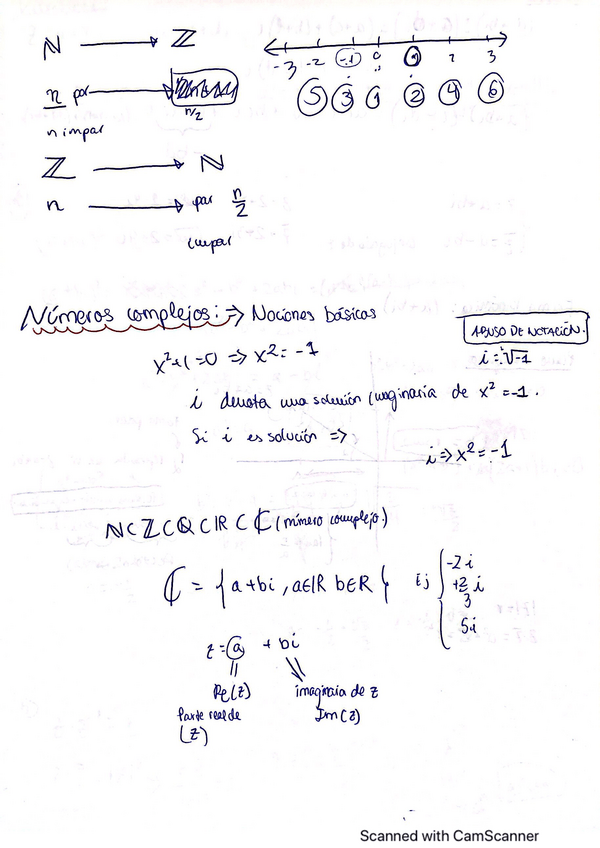 ℕ → ℤ
-3 -2 -1 0 1 2 3
n par → n/2
5 3 1 2 4 6
n impar
ℤ → ℕ
n → par n/2
impar
Números complejos: => Nociones básicas
ABUSO DE NOTACIÓN.
x²+1=0 => x²=-1
i=√-1
i denota una solución imaginaria de x²=-1.
Si i es solución =>
i => x²=-1
ℕ⊂ℤ⊂ℚ⊂ℝ⊂ℂ (número complejo.)
ℂ = { a+bi, a∈ℝ b∈ℝ }
Ej { -2i
+2/3 i
5i
z = a + bi
Re(z) imaginaria de z
Parte real de Im(z)
(z)
Scanned with CamScanner